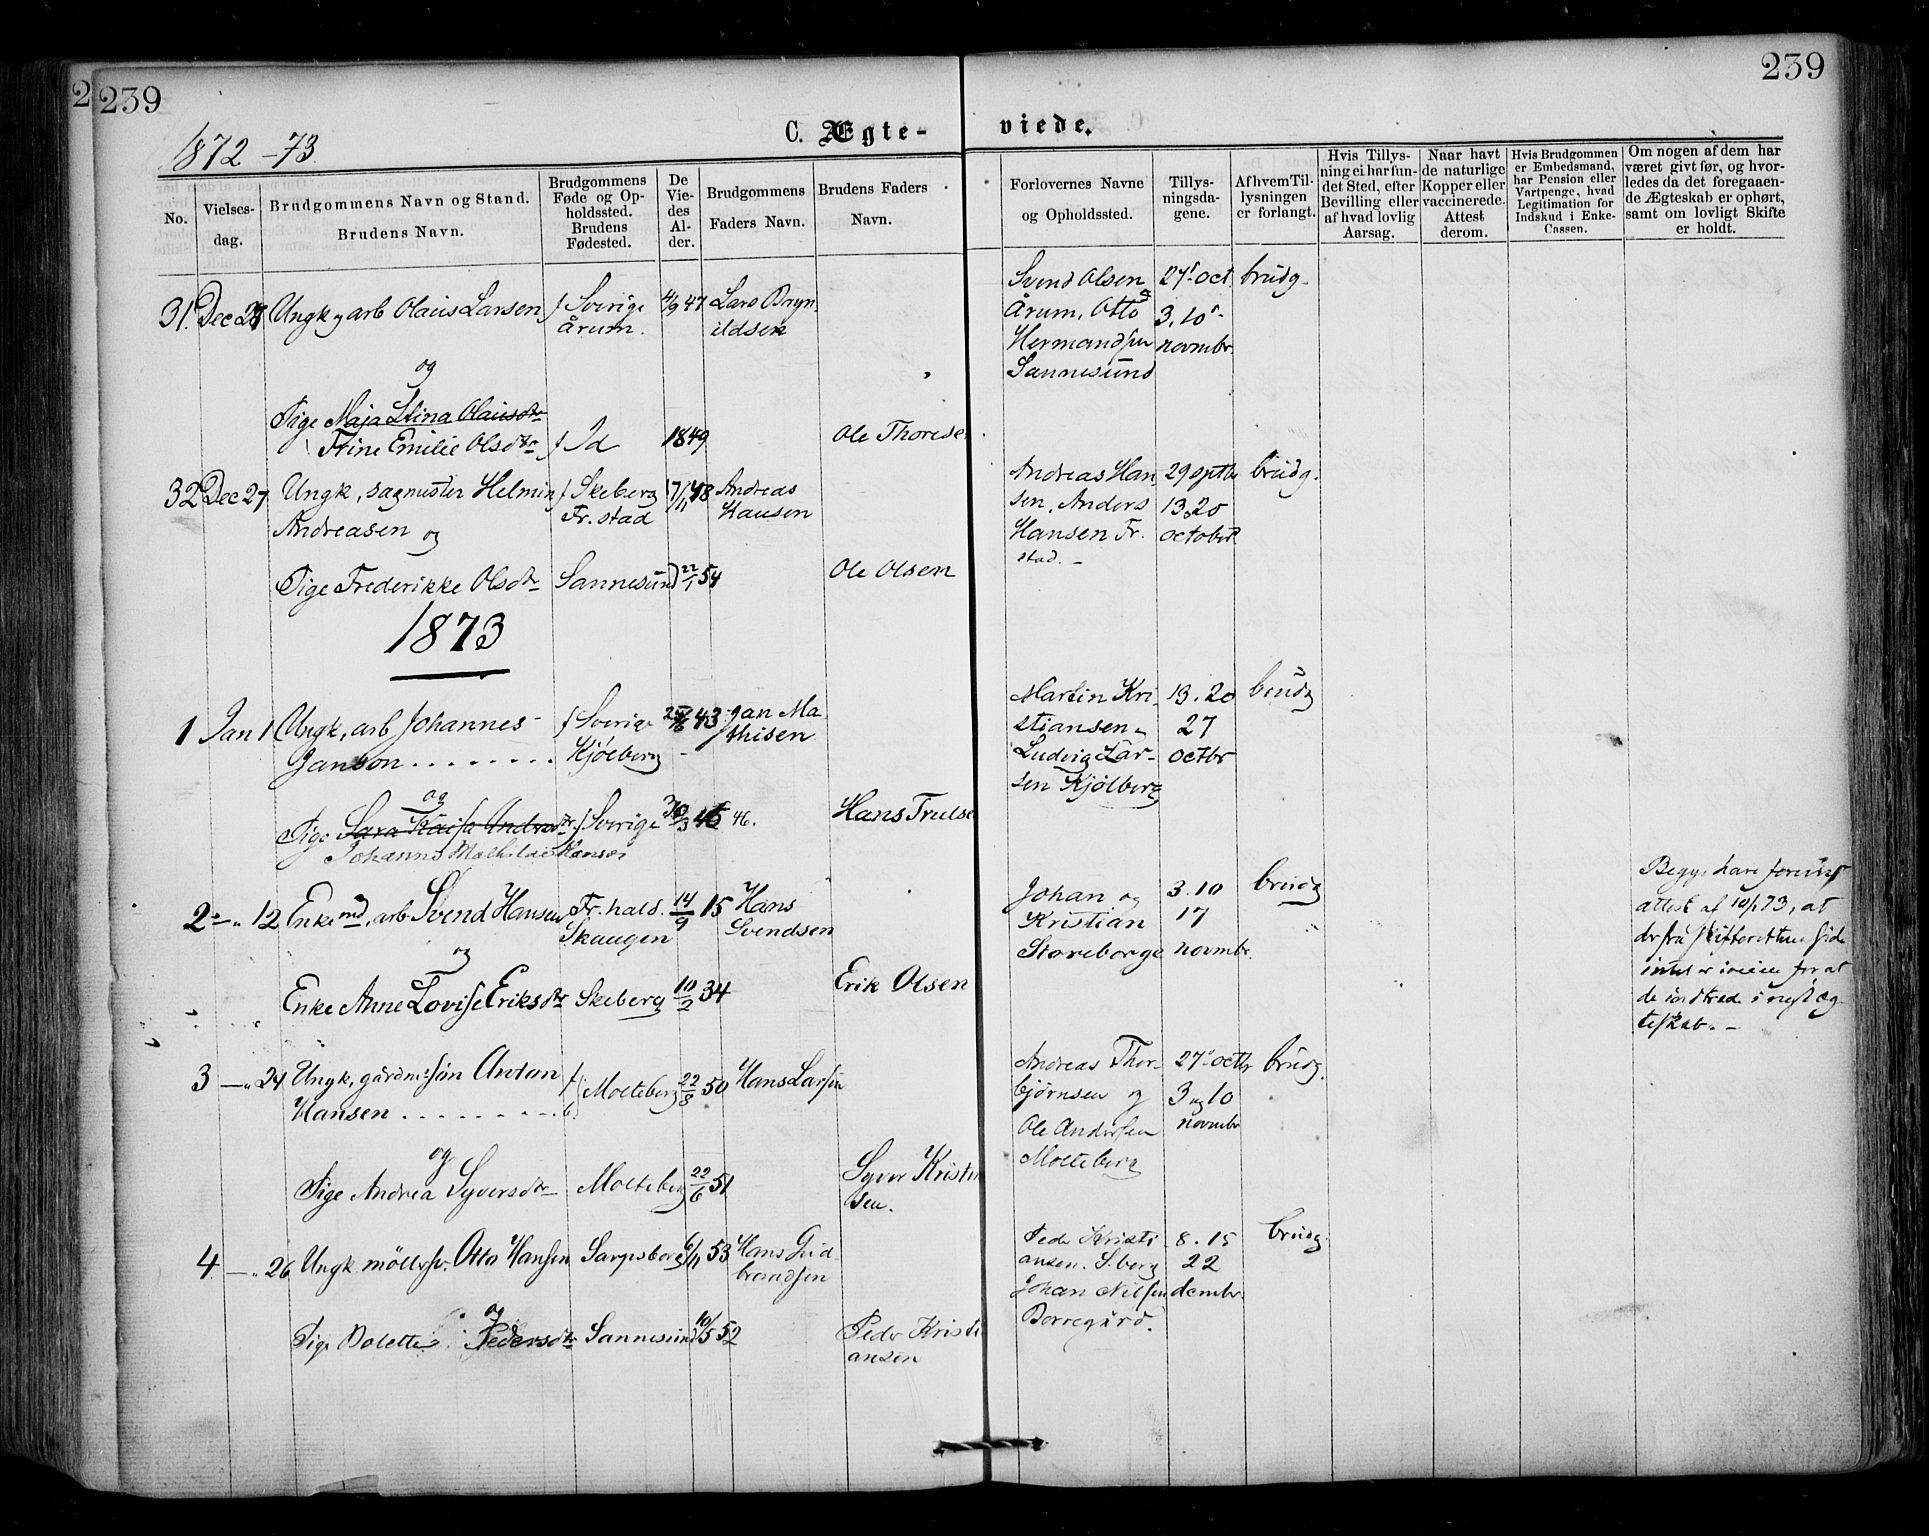 239
239
1872-73
C. Ægte-
viede.
No.
Vielses-
dag.
Brudgommens Navn og Stand.
Brudens Navn.
Brudgommens
Føde og Op-
holdssted.
Brudens
Fødested.
De
Vie-
des
Al-
der.
Brudgommens
Faders Navn.
Brudens Faders
Navn.
Forlovernes Navne
og Opholdssted.
Tillys-
ningsda-
gene.
Af hvem Til-
lysningen
er forlangt.
Hvis Tillys-
ning ei har fun-
det Sted, efter
Bevilling eller
af hvad lovlig
Aarsag.
Naar havt
de naturlige
Kopper eller
vaccinerede.
Attest
derom.
Hvis Brudgommen
er Embedsmand,
har Pension eller
Vartpenge, hvad
Legitimation for
Indskud i Enke-
Cassen.
Om nogen af dem har
været givt før, og hvor-
ledes da det foregaaen-
de Ægteskab er ophørt,
samt om lovligt Skifte
er holdt.
31. Dec Ungk, arb Olaus Larsen f Sverige 4/9 47 Lars
årum. ildsen
Svend Olsen 27' oct brudg.
Årum, Otto 3, 10'-
Hermandsen novmbr.
Sannesund
og
Pige Maja Stina Olausdtr
Trine Emilie Olsdtr f Id 1849 Ole Thoresen
32 Dec 27 Ungk, sagmester Helmin f Skeberg 17/11 48 Andreas
Andreasen og Fr. stad Hansen
Andreas Han 29 sptbr brudg.
sen, Anders 13.20
Hansen Fr. octobr.
stad. -
Pige Frederikke Olsdtr Sannesund 22/1 54 Ole Olsen
1873
1 Jan 1 Ungk, arb Johannes f Sverige 43 Jan Ma
Janson . . . . . . . . Kjölberg thisen
Martin Kri- 13. 20 brudg
stiansen 27
Ludvig Lar- octbr
sen Kjölberg
og
Pige Sara Kaisa Andreasdtr f Sverige 46. Hans Trulsen
Johanne Mathilde Hansdtr
2 - " 12 Enkemd, arb Svend Hansen Fr. hald. 14/9 15 Hans
Skaugen Svendsen
Johan og 3.10 brudg
Kristian 17
Storeborge novmbr.
og
Enke Anne Lovise Eriksdtr Skeberg 10/2 34 Erik Olsen
Begge have forevist
attest af 10/1 73, at
der fra skifterettens side
intet er i veien for at
de indtræde i nyt æg
teskab. -
3 - " 24 Ungk, gårdms: sön Anton f Molteberg 22/8 50 Hans Larsen
Hansen . . . . . . . . b.
Andreas Thor- 27' octbr brudg.
björnsen og 3 og 10
Ole Andersen novmbr
Molteberg
og
Pige Andrea Syversdtr Molteberg 22/6 51 Syver Kristen
sen.
4 - " 26 Ungk möllersv. Otto Hansen Sarpsborg 6/11 53 Hans Gud-
brandsen
Peder Kristi 8. 15 brudg
ansen. S.berg 22
Johan Nilsen dcembr.
Borregård.
og
Pige Bolette Pedersdtr Sannesund 10/5 52 Peder Kristi
ansen